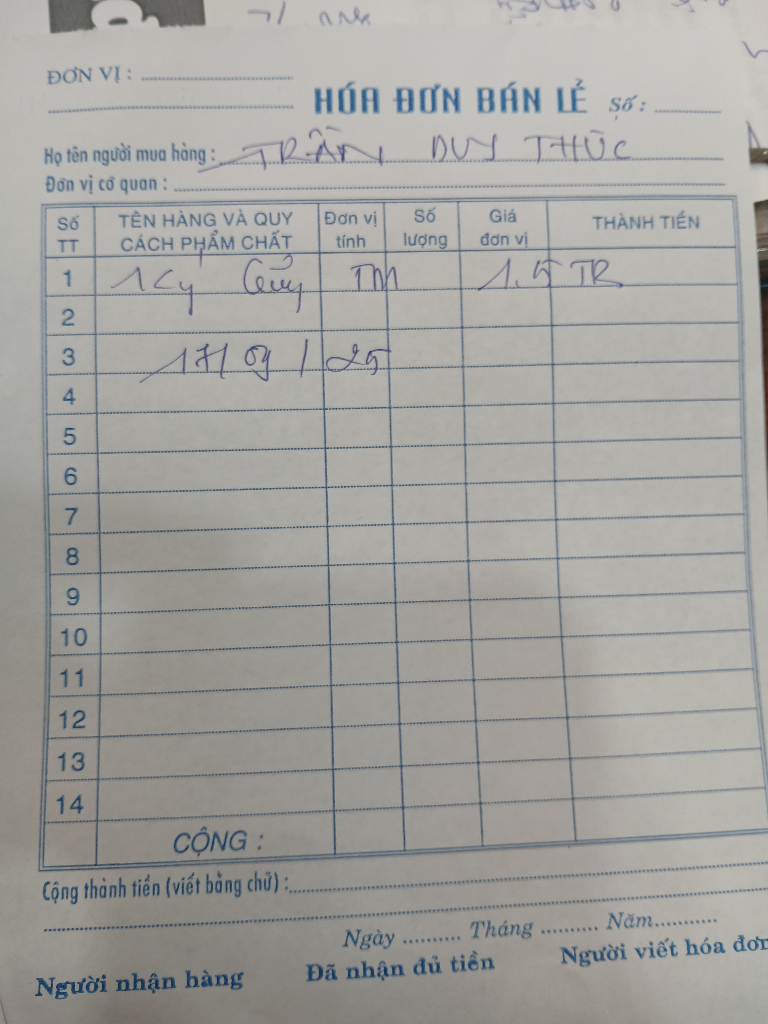 ĐƠN VỊ :
HÓA ĐƠN BÁN LẺ Số :
Họ tên người mua hàng : TRẦN DUY THỨC
Đơn vị cơ quan :
Số TT TÊN HÀNG VÀ QUY CÁCH PHẨM CHẤT Đơn vị tính Số lượng Giá đơn vị THÀNH TIỀN
1 Ký Quỹ TM 1.5 TR
2
3 17/09/25
4
5
6
7
8
9
10
11
12
13
14
CỘNG :
Cộng thành tiền (viết bằng chữ) :
Ngày .......... Tháng .......... Năm...........
Người nhận hàng Đã nhận đủ tiền Người viết hóa đơn